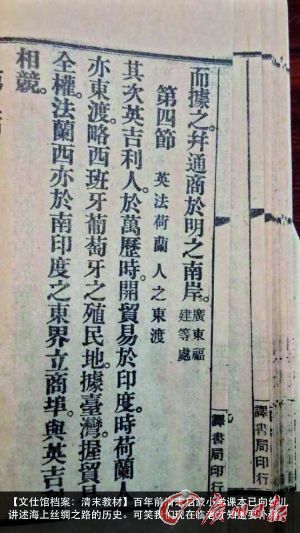 而據之。幷通商於明之南岸。廣東福建等處
第四節　英法荷蘭人之東渡
其次英吉利人。於萬歷時。開貿易於印度。時荷蘭人
亦東渡。略西班牙葡萄牙之殖民地。據臺灣。握貿
全權。法蘭西亦於南印度之東界立商埠。與英吉
相競。
譯書局印行
譯書局印行
【文仕馆档案：清末教材】百年前
启蒙小学课本已向幼儿
讲述海上丝绸之路的历史。可笑我们现在临老方知也要补课